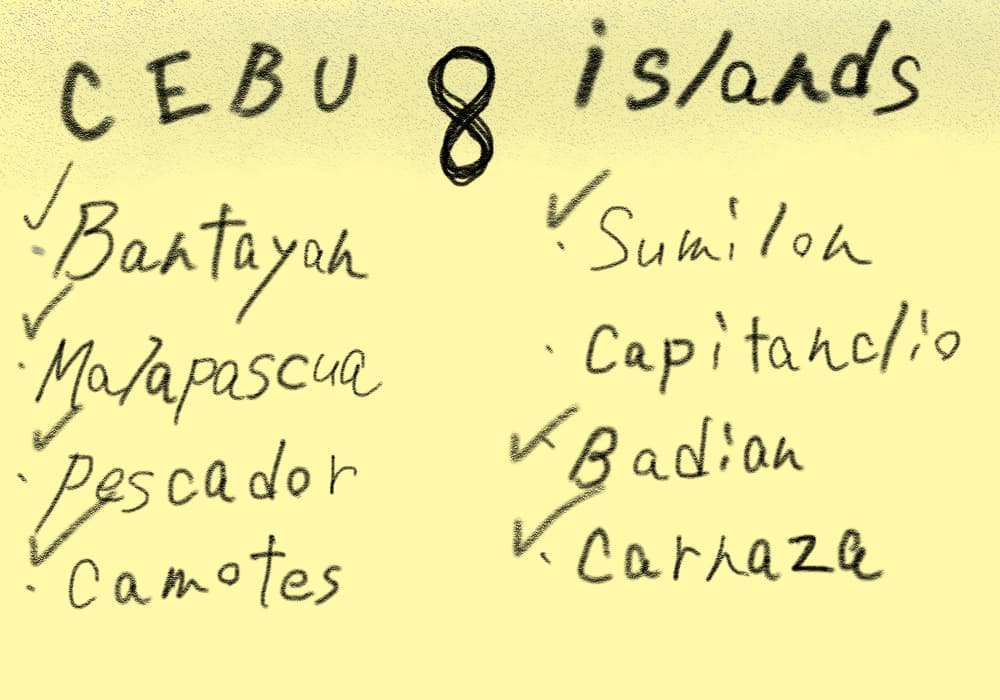 CEBU 8 islands
✓ · Bantayan
✓ · Malapascua
✓ · Pescador
✓ · Camotes
✓ · Sumilon
· Capitanclio
✓ Badian
✓ · Carnaza